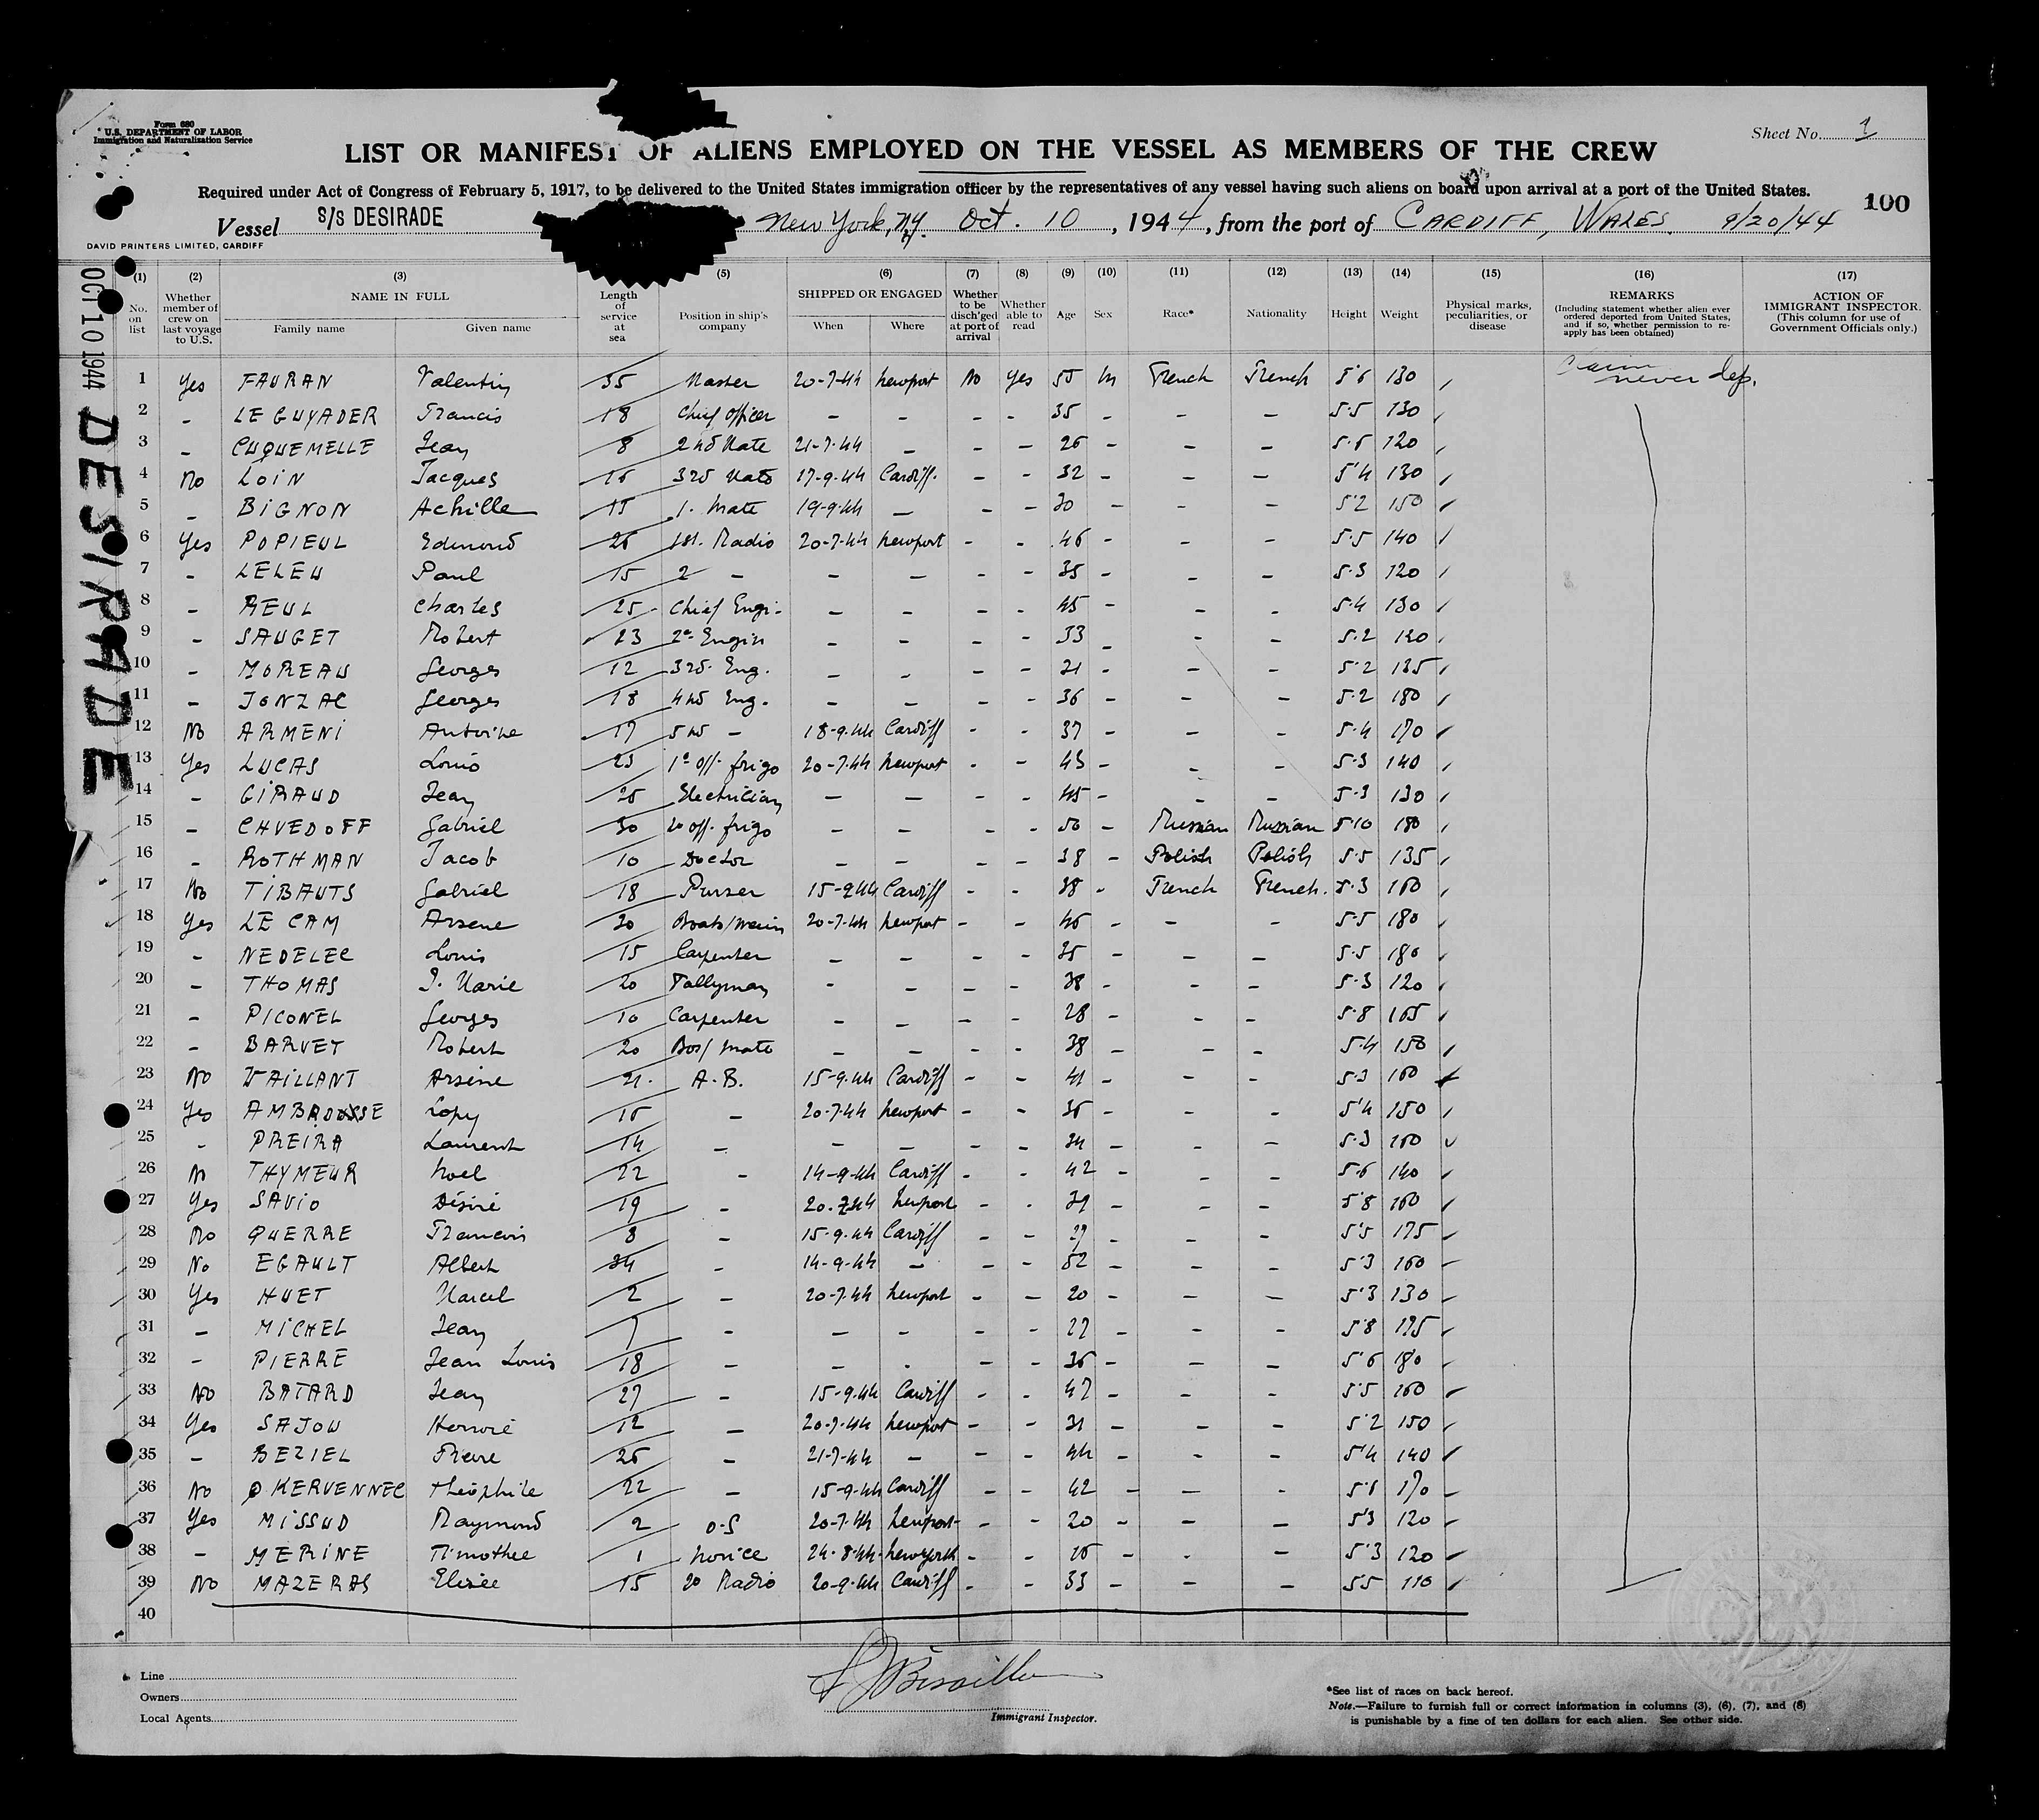 Form 680
U.S. DEPARTMENT OF LABOR
Immigration and Naturalization Service
Sheet No. 1
LIST OR MANIFEST OF ALIENS EMPLOYED ON THE VESSEL AS MEMBERS OF THE CREW
Required under Act of Congress of February 5, 1917, to be delivered to the United States immigration officer by the representatives of any vessel having such aliens on board upon arrival at a port of the United States.
100
Vessel S/S DESIRADE New York, N.Y. Oct. 10, 1944, from the port of CARDIFF, WALES. 9/20/44
DAVID PRINTERS LIMITED, CARDIFF
OCT 10 1944 DESIRADE
(1) (2) (3) (5) (6) (7) (8) (9) (10) (11) (12) (13) (14) (15) (16) (17)
No. on list Whether member of crew on last voyage to U.S. NAME IN FULL Family name Given name Length of service at sea Position in ship's company SHIPPED OR ENGAGED When Where Whether to be disch'ged at port of arrival Whether able to read Age Sex Race* Nationality Height Weight Physical marks, peculiarities, or disease REMARKS (Including statement whether alien ever ordered deported from United States, and if so, whether permission to re-apply has been obtained) ACTION OF IMMIGRANT INSPECTOR. (This column for use of Government Officials only.)
1 Yes FAURAN Valentin 35 Master 20-7-44 Newport No Yes 55 M French French 5'6 130 Claim never dep.
2 - LE GUYADER Francis 18 Chief officer - - - - 35 - - - 5.5 130
3 - CUQUEMELLE Jean 8 2nd Mate 21-7-44 - - - 26 - - - 5.5 120
4 No LOIN Jacques 16 3rd Mate 17-9-44 Cardiff - - 32 - - - 5'4 130
5 - BIGNON Achille 15 1. Mate 19-9-44 - - - 30 - - - 5'2 150
6 Yes POPIEUL Edmond 26 1st. Radio 20-7-44 Newport - - 46 - - - 5.5 140
7 - LELEU Paul 15 2 - - - - - 35 - - - 5.3 120
8 - REUL Charles 25 Chief Engi. - - - - 45 - - - 5.4 130
9 - SAUGET Robert 23 2e Engin - - - - 33 - - - 5.2 120
10 - MOREAU Georges 12 3rd. Eng. - - - - 31 - - - 5'2 135
11 - JONZAC Georges 18 4th Eng. - - - - 36 - - - 5.2 180
12 No ARMENI Antoine 17 5th - 18-9-44 Cardiff - - 37 - - - 5.4 170
13 Yes LUCAS Louis 23 1e off. frigo 20-7-44 Newport - - 43 - - - 5.3 140
14 - GIRAUD Jean 25 Electrician - - - - 45 - - - 5.3 130
15 - CHVEDOFF Gabriel 30 2e off. frigo - - - - 50 - Russian Russian 5'10 180
16 - ROTHMAN Jacob 10 Doctor - - - - 38 - Polish Polish 5.5 135
17 No TIBAUTS Gabriel 18 Purser 15-9-44 Cardiff - - 38 - French French 5.3 160
18 Yes LE CAM Arsene 30 Boats/wain 20-7-44 Newport - - 46 - - - 5.5 180
19 - NEDELEC Louis 15 Carpenter - - - - 35 - - - 5.5 180
20 - THOMAS J. Marie 20 Tallyman - - - - 38 - - - 5.3 120
21 - PICONEL Georges 10 Carpenter - - - - 28 - - - 5.8 165
22 - BARVET Robert 20 Bos/ mate - - - - 38 - - - 5.4 150
23 No VAILLANT Arsène 21 A.B. 15-9-44 Cardiff - - 41 - - - 5.3 160
24 Yes Lopy 16 - 20-7-44 Newport - - 36 - - - 5'4 150
25 - PREIRA Laurent 14 - - - - - 34 - - - 5.3 160
26 No THYMEUR Noel 22 - 14-9-44 Cardiff - - 42 - - - 5.6 140
27 Yes SAVIO Désiré 19 - 20-7-44 Newport - - 39 - - - 5'8 160
28 No QUERRE Francois 8 - 15-9-44 Cardiff - - 27 - - - 5'5 175
29 No EGAULT Albert 34 - 14-9-44 - - - 52 - - - 5'3 160
30 Yes HUET Marcel 2 - 20-7-44 Newport - - 20 - - - 5'3 130
31 - MICHEL Jean 7 - - - - - 27 - - - 5'8 175
32 - PIERRE Jean Louis 18 - - - - - 36 - - - 5'6 180
33 No BATARD Jean 27 - 15-9-44 Cardiff - - 47 - - - 5'5 160
34 Yes SAJOU 12 - 20-7-44 Newport - - 31 - - - 5'2 150
35 - BEZIEL Pierre 26 - 21-7-44 - - - 44 - - - 5'4 140
36 No KERVENNEC théophile 22 - 15-9-44 Cardiff - - 42 - - - 170
37 Yes MISSUD Raymond 2 O.S 20-7-44 Newport - - 20 - - - 5'3 120
38 - MERINE Timothee 1 Novice 24-8-44 New York - - 16 - - - 5'3 120
39 No MAZERAS Elisée 15 2e Radio 20-9-44 Cardiff - - 33 - - - 5'5 110
40
Line
Owners
Local Agents
Immigrant Inspector.
*See list of races on back hereof.
Note.—Failure to furnish full or correct information in columns (3), (6), (7), and (8)
is punishable by a fine of ten dollars for each alien. See other side.